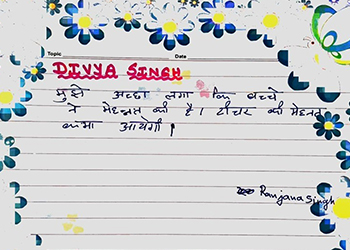 Topic Date
DIVYA SINGH
मुझे अच्छा लगा कि बच्चे
ने मेहनत की है। टीचर की मेहनत
काम आयेगी।
Ranjana Singh